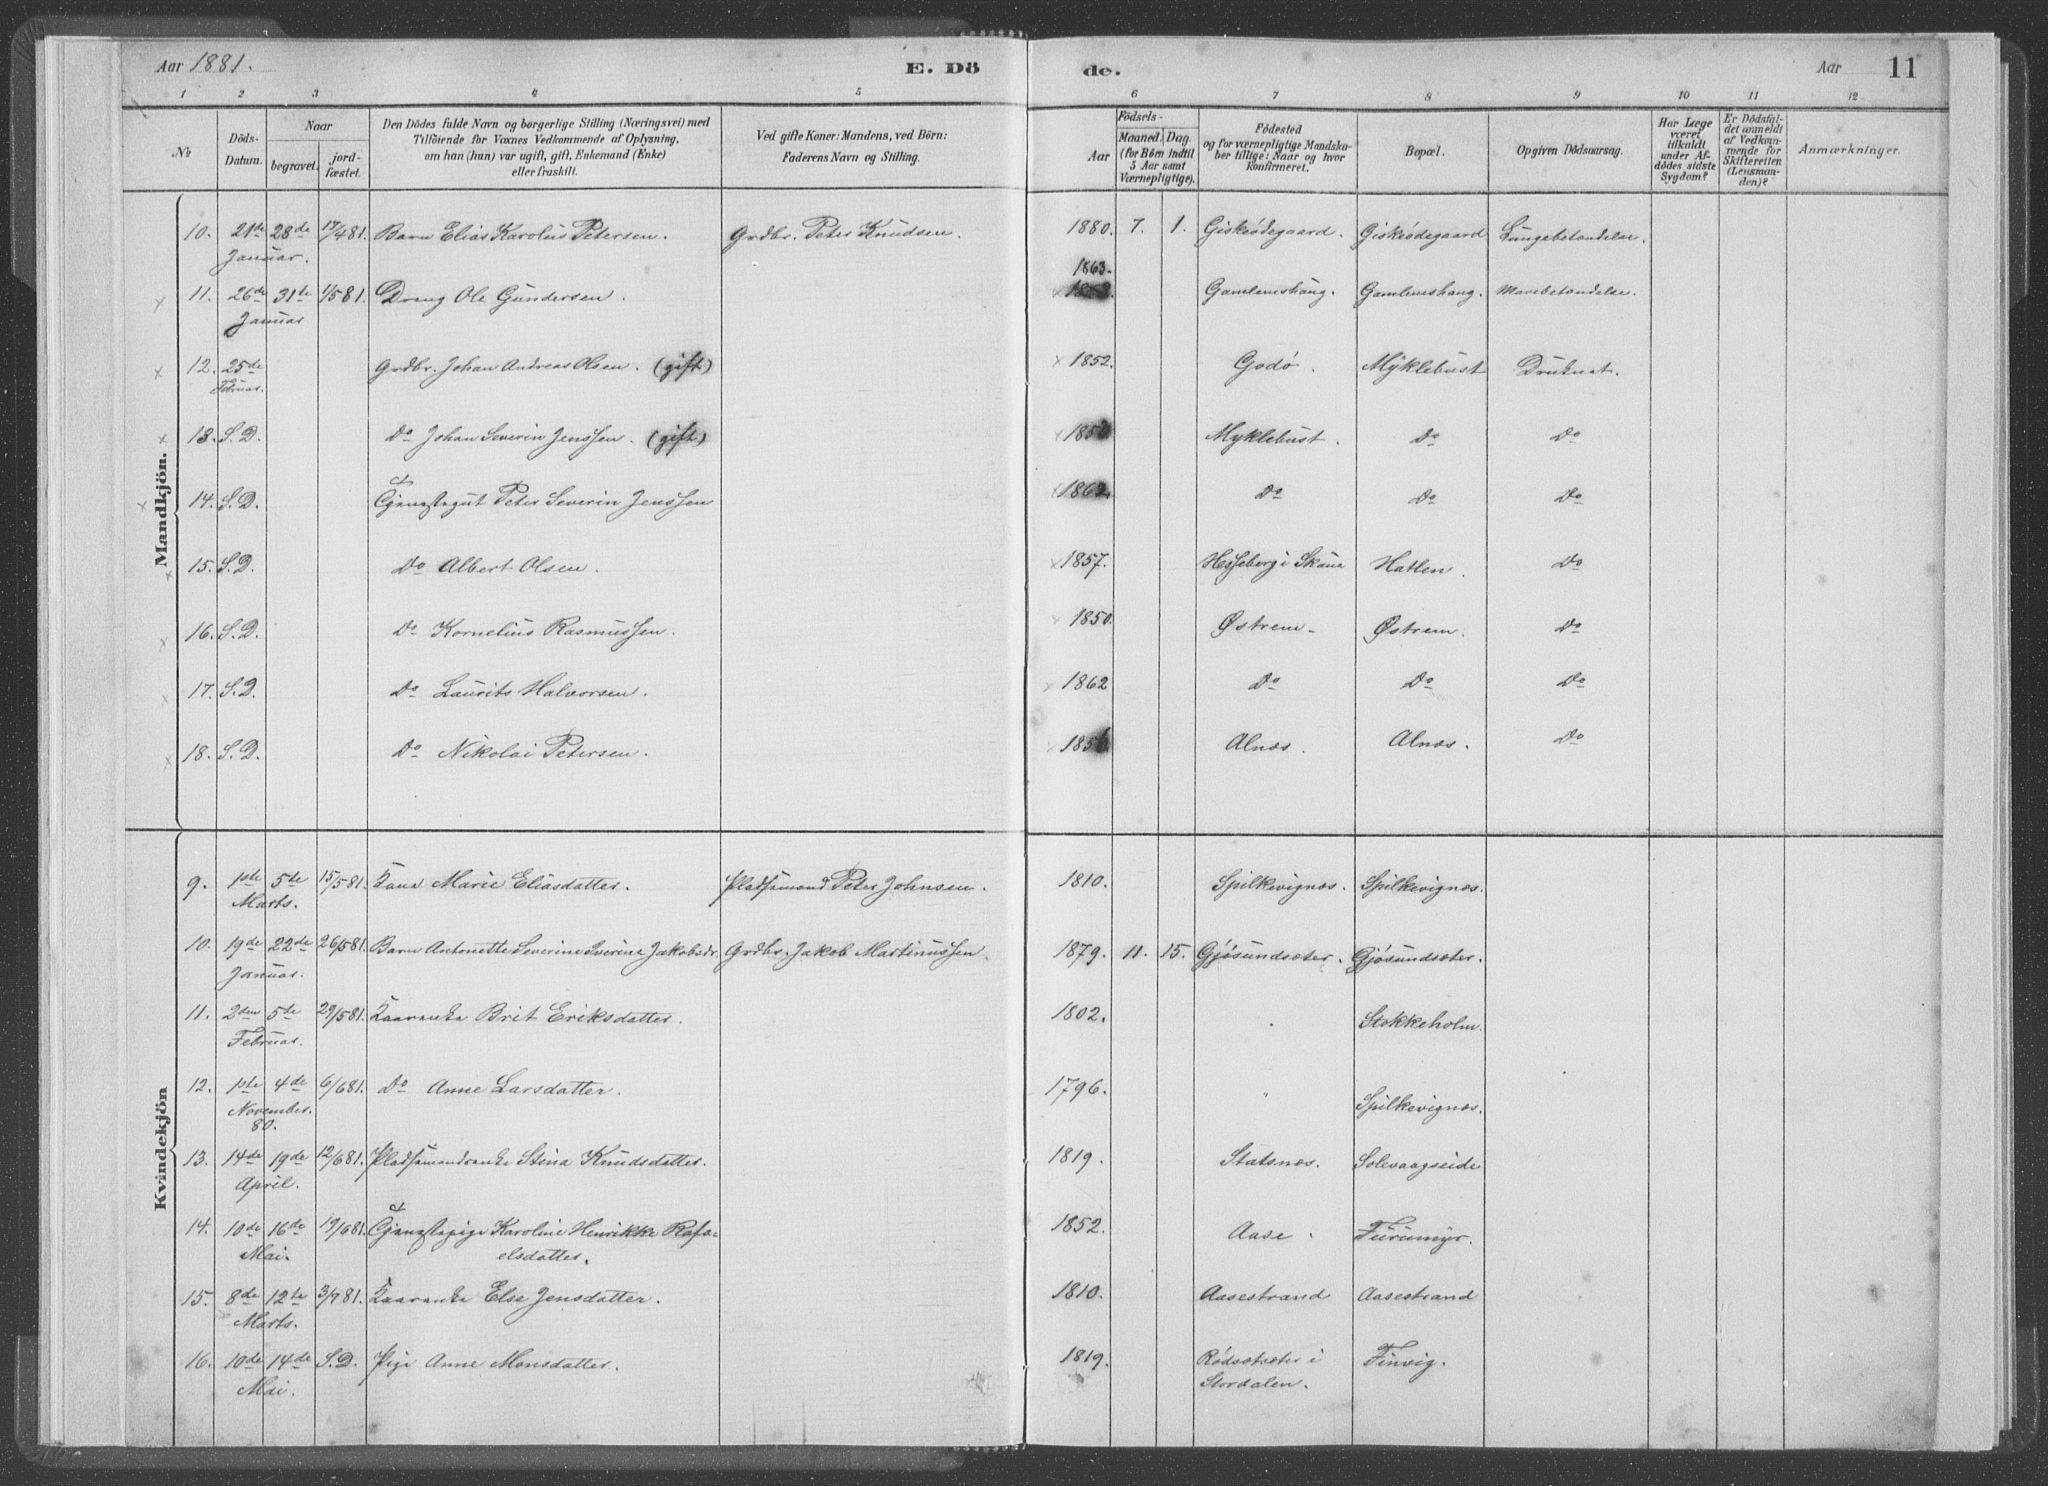 Aar 1881. E. Dö de. Aar 11
1 2 3 4 5 6 7 8 9 10 11 12
No Döds-Datum. Naar begravet. jordfæstet. Den Dödes fulde Navn og borgerlige Stilling (Næringsvei) med Tilföiende for Voxnes Vedkommende af Oplysning, om han (hun) var ugift, gift, Enkemand (Enke) eller fraskilt. Ved gifte Koner: Mandens, ved Börn: Faderens Navn og Stilling. Födsels- Aar Maaned. Dag. (for Börn indtil 5 Aar samt Værnepligtige). Födested og for værnepligtige Mandskaber tillige: Naar og hvor konfirmeret. Bopæl. Opgiven Dödsaarsag. Har Læge været tilkaldt under Afdödes sidste Sygdom? Er Dödsfaldet anmeldt af Vedkommende for Skifteretten (Lensmanden)? Anmærkninger.
Mandkjön.
10. 21de 28de 17/4 81. Barn Elias Karolus Petersen. Grdbr. Peter Knudsen. 1880. 7. 1. Giskeødegaard. Giskeødegaard Lungebetændelse.
Januar.
1863.
11. 26de 31te 1/5 81. Dreng Ole Gundersen. Gamlemshaug. Gamlemshaug. Mavebetændelse.
Januar
12. 25de Grdbr. Johan Andreas Olsen. (gift) 1852. Godø. Myklebust Druknet.
Februar.
13. S. D. Do Johan Severin Jenssen. (gift) Myklebust. Do Do
14. S. D. Peter Severin Jenssen 1862. Do Do Do
15. S. D. Do Albert Olsen. 1857. Hesseberg i Skaue Hatlen. Do
16. S. D. Do Kornelius Rasmussen. 1850. Østrem. Østrem. Do
17. S. D. Do Laurits Halvorsen. 1862 Do Do Do
18. S. D. Do Nikolai Petersen. 1856 Alnæs. Alnæs. Do
Kvindekjön
9. 1ste 5de 15/5 81. Kone Marie Eliasdatter. Pladsemand Peter Johnsen. 1810. Spilkevignæs. Spilkevignæs.
Marts.
10. 19de 22de 26/5 81. Barn Antonette Severine Iverine Jakobsdr. Grdbr. Jakob Martinussen. 1879. 11. 15. Gjøsundsæter. Gjøsundsæter.
Januar.
11. 2den 5de 29/5 81. Kaarenke Brit Eriksdatter. 1802. " Stokkeholm.
Februar.
12. 1ste 4de 6/6 81. Do Anne Larsdatter. 1796. " Spilkevignæs.
November.
80.
13. 14de 19de 12/6 81. Pladsemandsenke Stina Knudsdatter. 1819. Statsnæs. Solevaagseide
April.
14. 10de 16de 19/6 81. Gjenestepige Karoline Henrikke Rafa- 1852. Aase. Furumyr.
Mai. elsdatter.
15. 8de 12te 3/7 81. Kaarenke Else Jensdatter. 1810. Aasestrand Aasestrand
Marts.
16. 10de 14de S. D. Pige Anne Monsdatter. 1819. Rødsætæter i Finvig.
Mai. Stordalen.